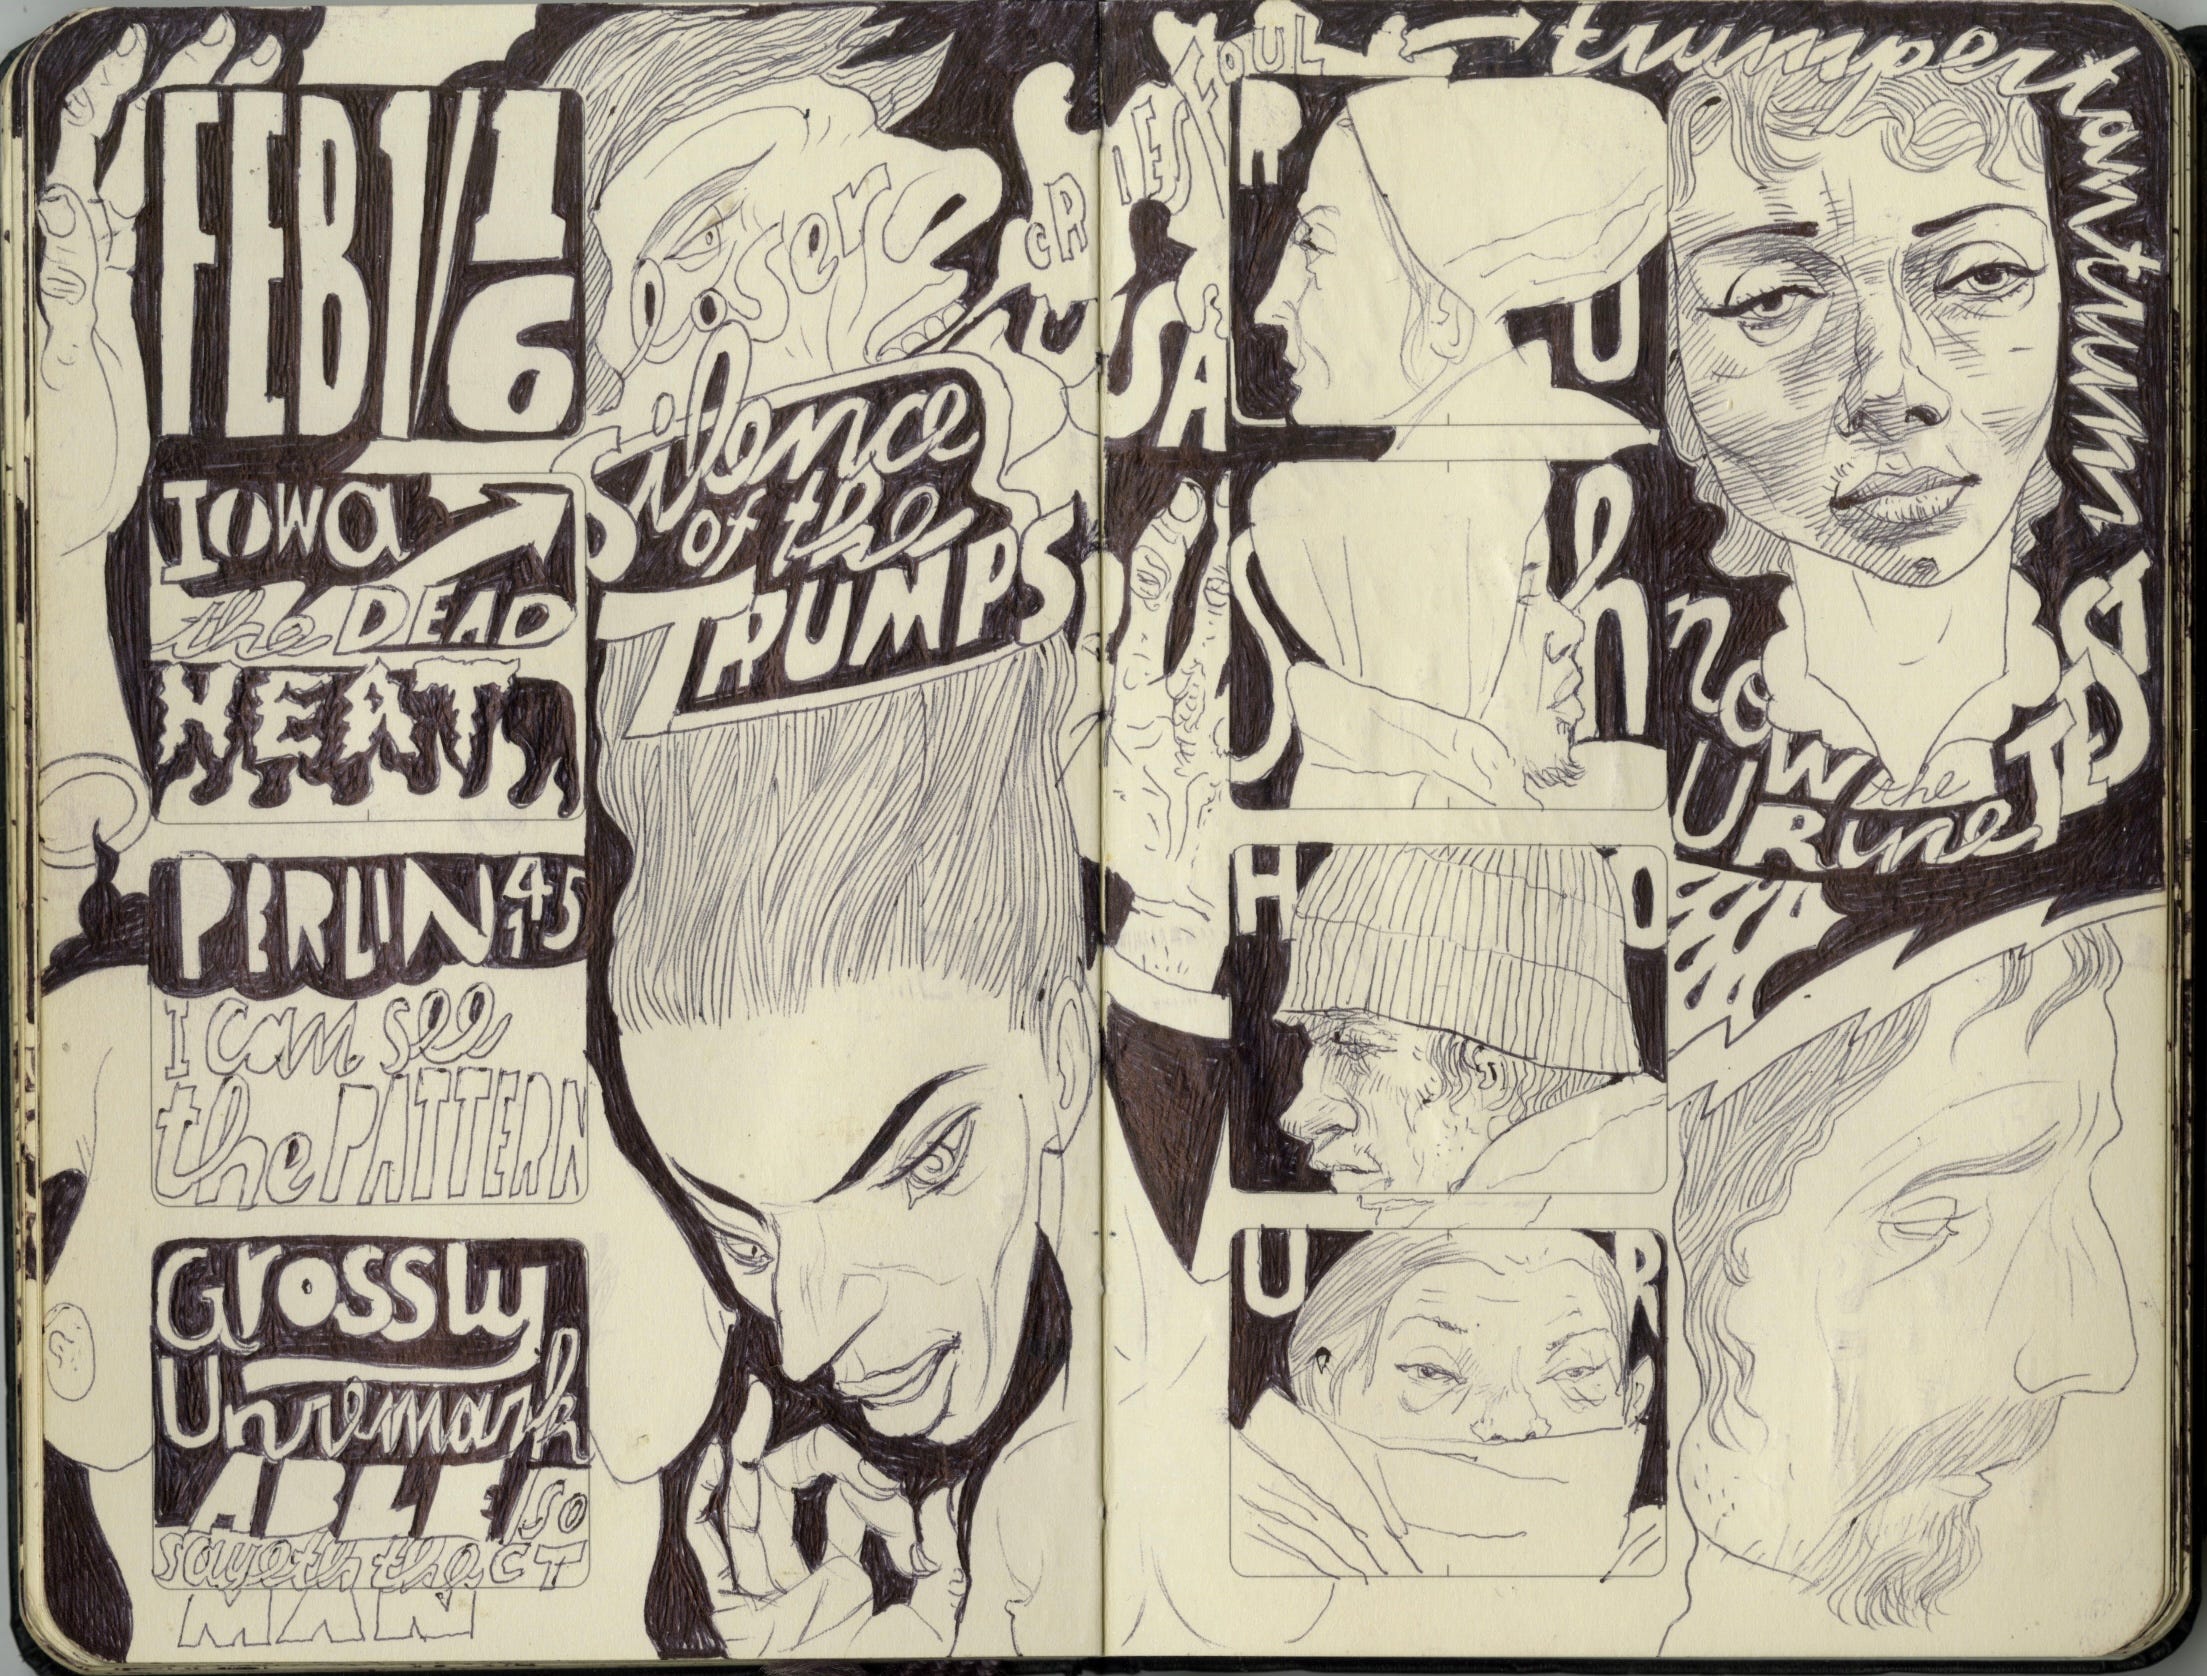 FEB 1/16
Loser
Silence
of the
TRUMPS
Iowa
the DEAD
HEAT
PERLIN 145
I can see
the PATTERN
Grossly
Unremark
ABLE / SO
sayeth the CT
MAN
CRIES FOUL
trumpertantrum
USA
RU
Sh
HO
UR
now the
URINE
TESTED